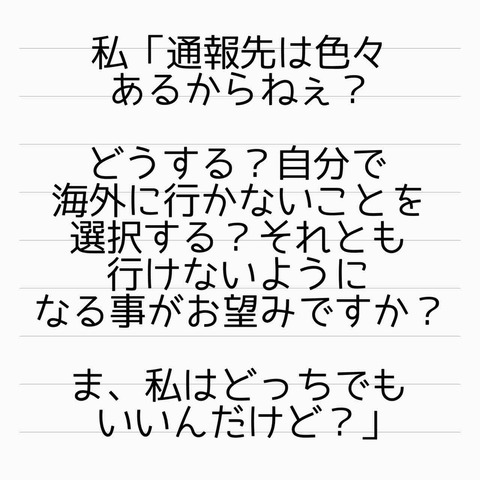 私「通報先は色々
あるからねぇ？
どうする？自分で
海外に行かないことを
選択する？それとも
行けないように
なる事がお望みですか？
ま、私はどっちでも
いいんだけど？」